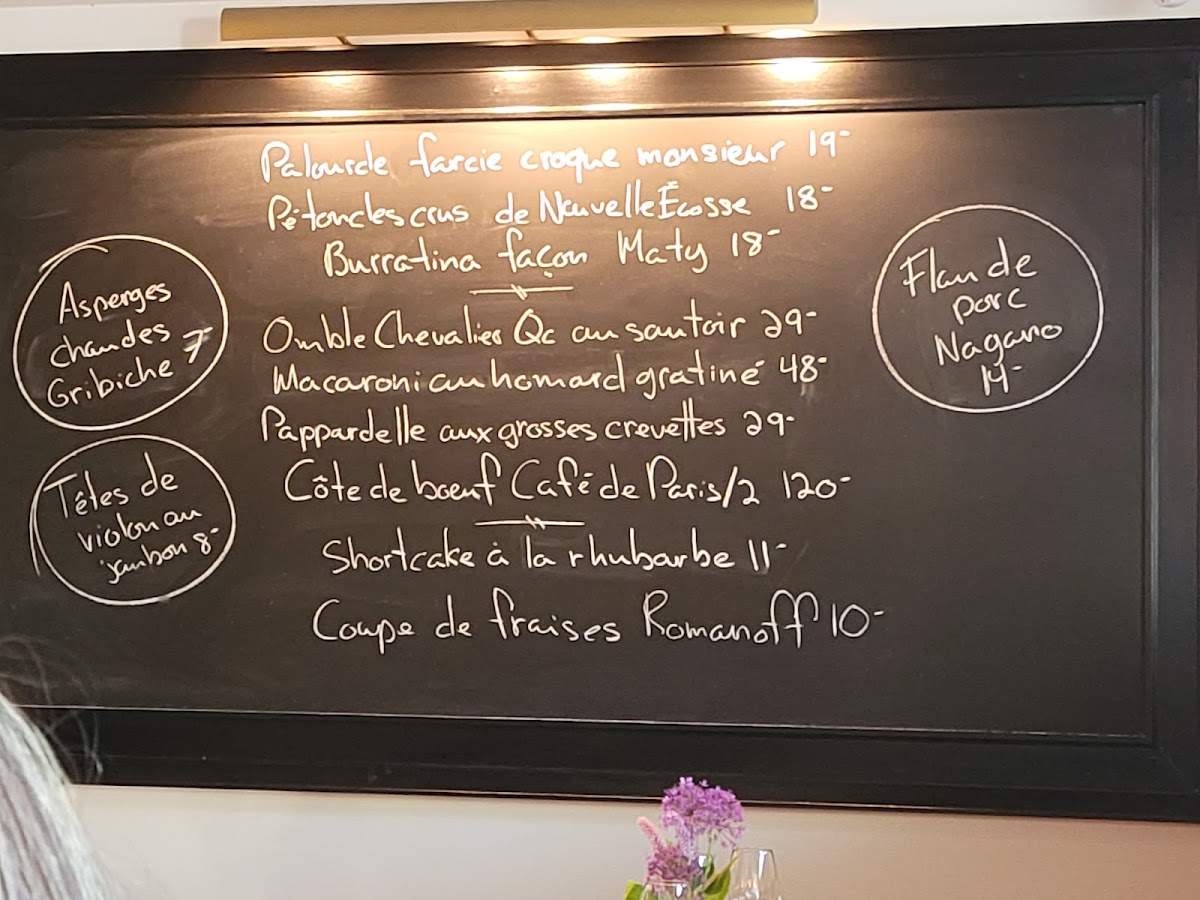 Palourde farcie croque monsieur 19-
Pétoncles crus de Nouvelle Écosse 18-
Burratina façon Maty 18-
Omble Chevalier Qc au sautoir 29-
Macaroni au homard gratiné 48-
Pappardelle aux grosses crevettes 29-
Côte de boeuf Café de Paris/2 120-
Shortcake à la rhubarbe 11-
Coupe de fraises Romanoff 10-
Asperges
chaudes
Gribiche 7-
Têtes de
violon au
jambon 8-
Flan de
porc
Nagano
14-